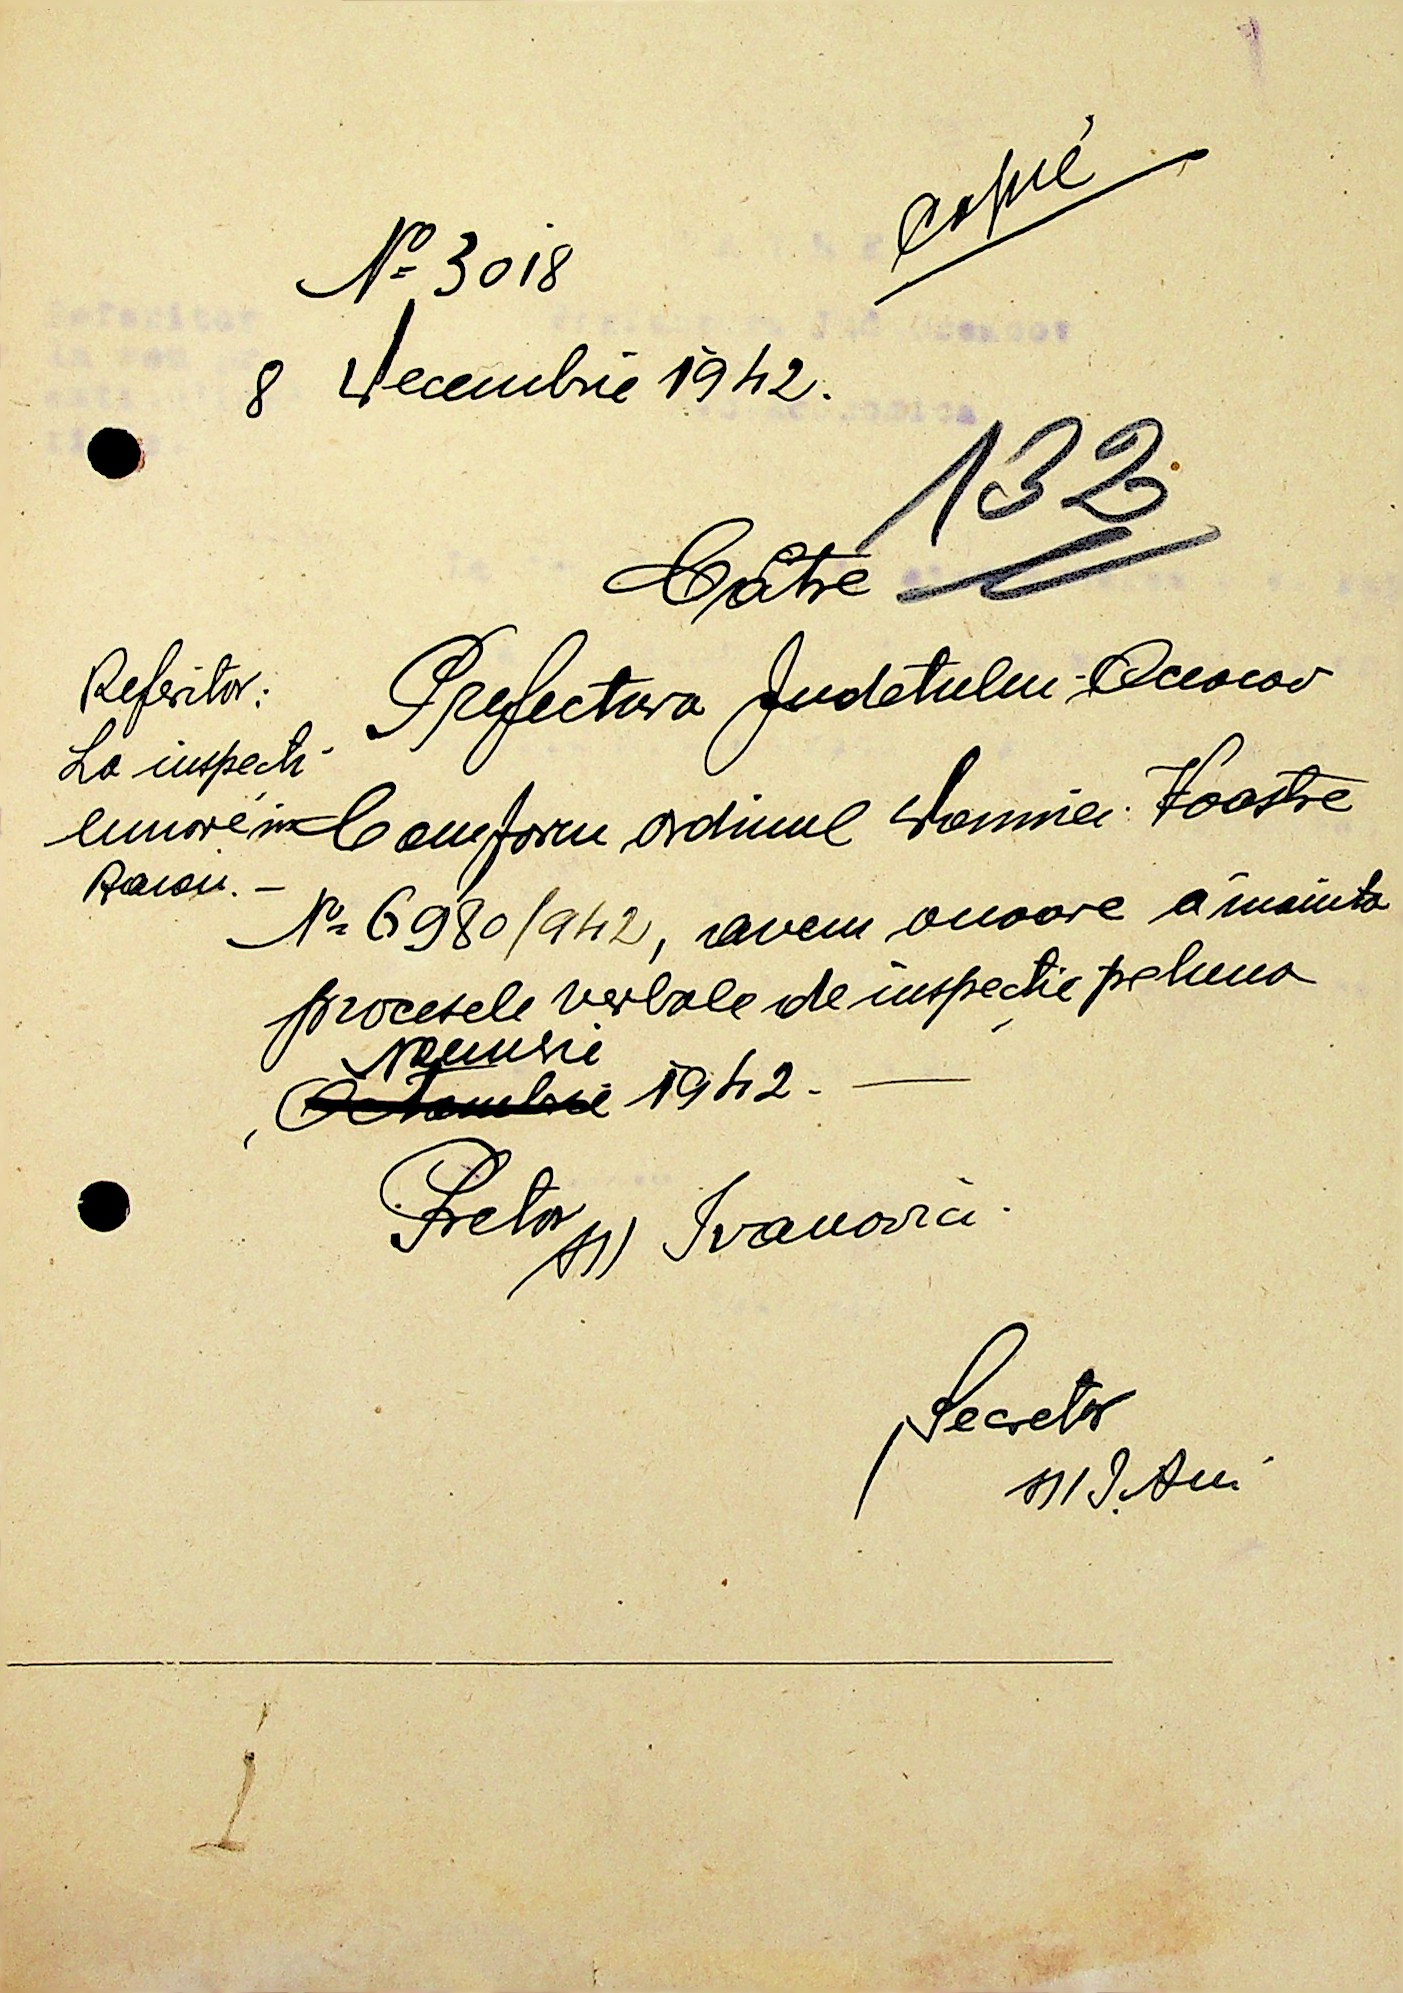 Copie
Nº 3018
8 Decembrie 1942.
132
Către
Referitor:
La inspecti
lunare in
Raion. –
Prefectura Judetului Oceacov
Comform ordinul Domniei Voastre
Nº 6980/942, avem onoare a inainta
procesele verbale de inspecție pe luna
Noemvrie
Octombrie 1942. —
Pretor ss) Ivanovici
Secretar
ss) I.